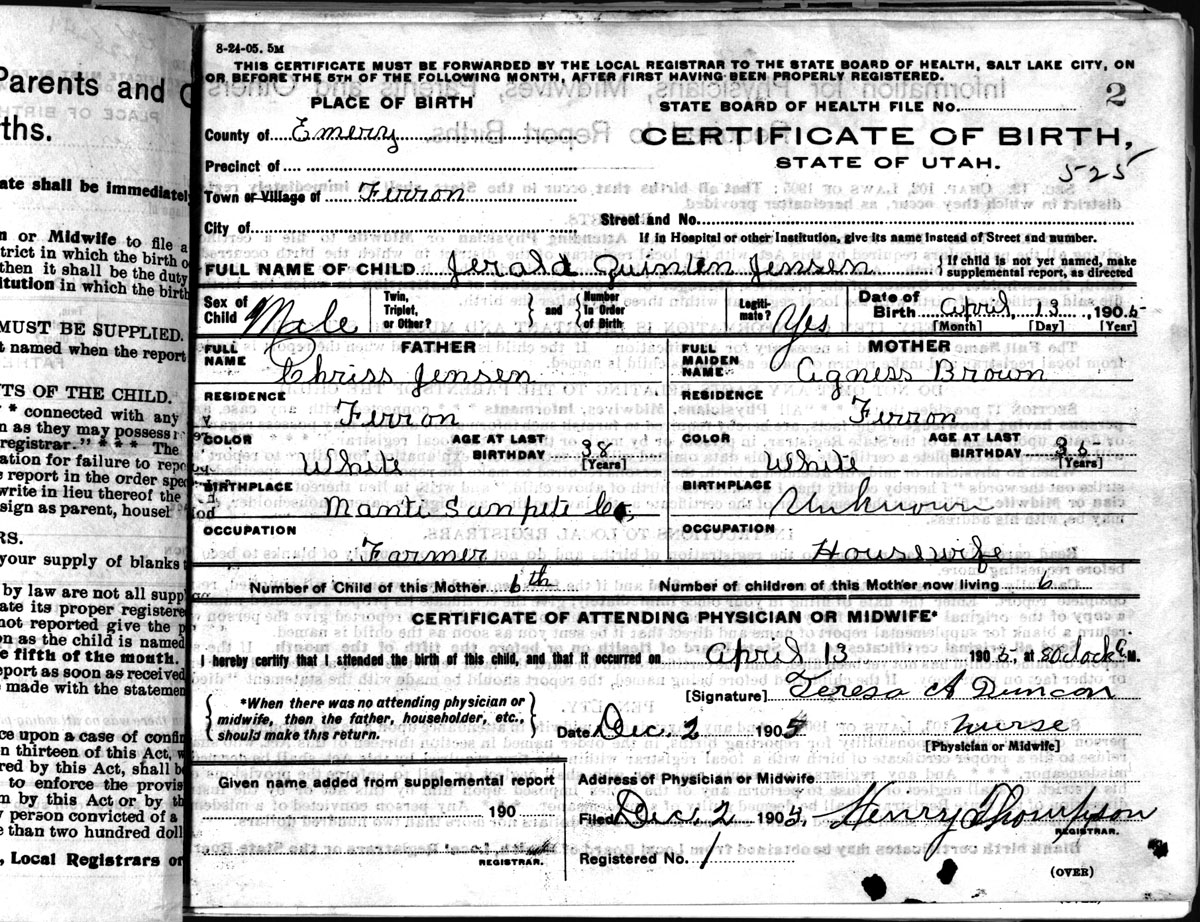 Parents and
ths.
ate shall be immediately
n or Midwife to file a
trict in which the birth
then it shall be the duty
itution in which the birth
MUST BE SUPPLIED.
t named when the report
TS OF THE CHILD.
* connected with any
n as they may possess
registrar." * * * The
ation for failure to repo
e report in the order spe
write in lieu thereof the
sign as parent, househ
RS.
your supply of blanks
by law are not all supp
ate its proper registere
not reported give the p
on as the child is named
e fifth of the month.
eport as soon as received
made with the statemen
ce upon a case of confin
n thirteen of this Act, w
red by this Act, shall be
to enforce the provis
m by this Act or by th
y person convicted of a
e than two hundred doll
, Local Registrars or
8-24-05. 5M
THIS CERTIFICATE MUST BE FORWARDED BY THE LOCAL REGISTRAR TO THE STATE BOARD OF HEALTH, SALT LAKE CITY, ON
OR BEFORE THE 5TH OF THE FOLLOWING MONTH, AFTER FIRST HAVING BEEN PROPERLY REGISTERED.
PLACE OF BIRTH
STATE BOARD OF HEALTH FILE No. 2
County of Emery
CERTIFICATE OF BIRTH,
STATE OF UTAH.
525
Precinct of
Town or Village of Ferron
City of
Street and No.
If in Hospital or other Institution, give its name instead of Street and number.
FULL NAME OF CHILD Jerald Quinten Jensen { If child is not yet named, make supplemental report, as directed
Sex of Child Male Twin, Triplet, or Other? } and { Number In Order of Birth Legiti- mate? Yes Date of Birth April, 13, 1905
[Month] [Day] [Year]
FULL NAME FATHER Chriss Jensen
FULL MAIDEN NAME MOTHER Agness Brown
RESIDENCE Ferron
RESIDENCE Ferron
COLOR White AGE AT LAST BIRTHDAY 38 [Years]
COLOR White AGE AT LAST BIRTHDAY [Years]
BIRTHPLACE Manti Sanpete Co,
BIRTHPLACE Unknown
OCCUPATION Farmer
OCCUPATION Housewife
Number of Child of this Mother 6th Number of children of this Mother now living 6
CERTIFICATE OF ATTENDING PHYSICIAN OR MIDWIFE*
I hereby certify that I attended the birth of this child, and that it occurred on April 13 1905, at 8 O'clock M.
[Signature] Teresa A Duncan
{ *When there was no attending physician or midwife, then the father, householder, etc., should make this return. }
Date Dec. 2 1905 nurse
[Physician or Midwife]
Given name added from supplemental report
190
REGISTRAR.
Address of Physician or Midwife
Filed Dec. 2 1905, Henry Thompson
REGISTRAR.
Registered No. 1
(OVER)